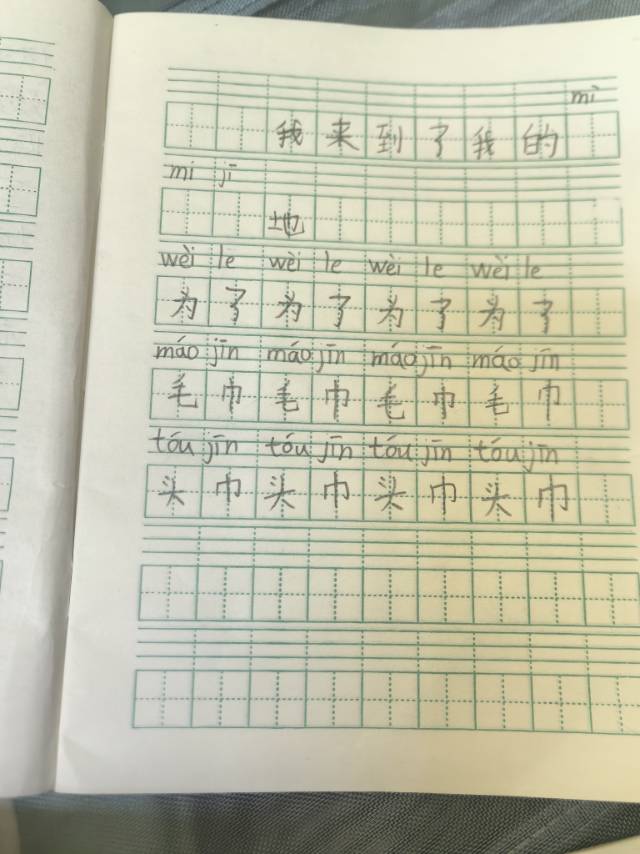 mì
我来到了我的
mì jī
地
wèi le wèi le wèi le wèi le
为了为了为了为了
máo jīn máo jīn máo jīn máo jīn
毛巾毛巾毛巾毛巾
tóu jīn tóu jīn tóu jīn tóu jīn
头巾头巾头巾头巾